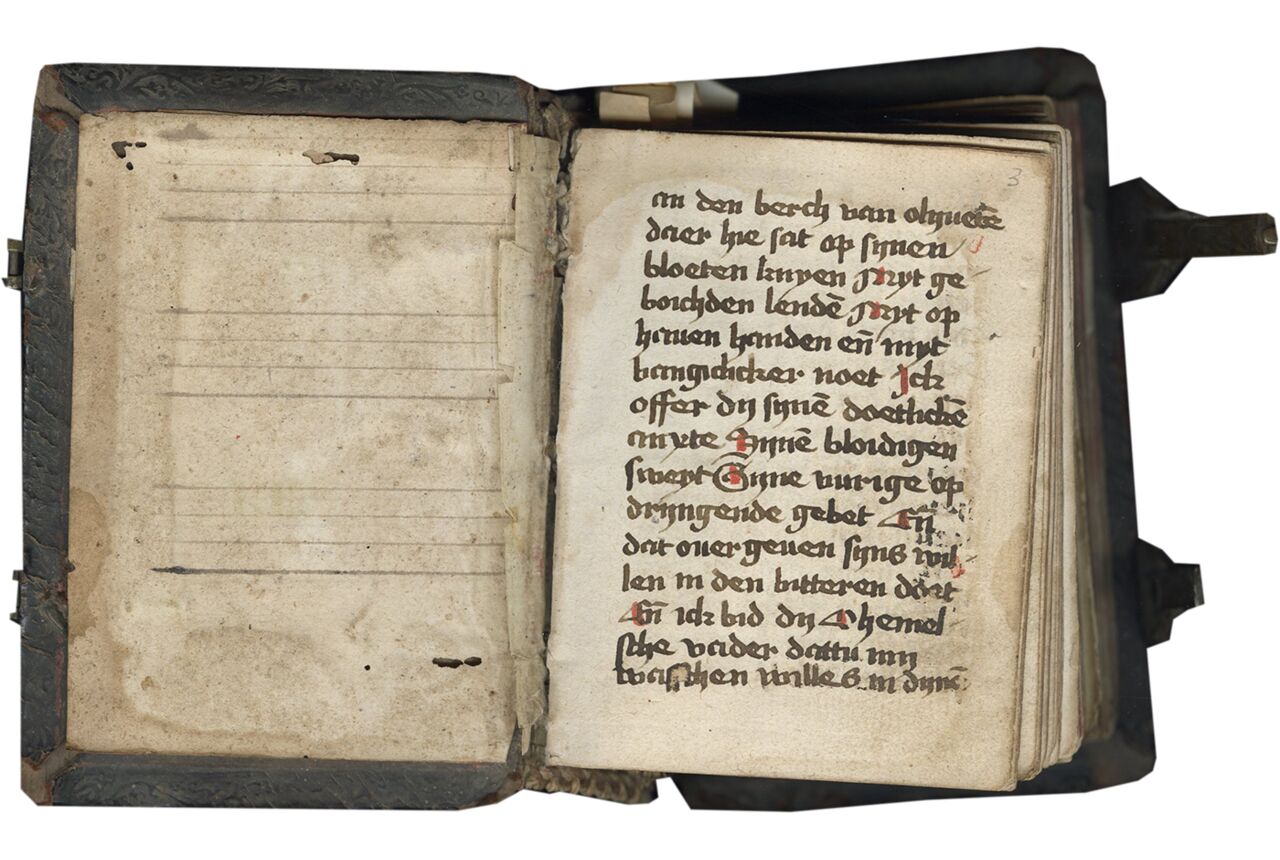 3
an den berch van olyuetē
daer hie sat op synen
bloeten knyen Myt ge
boichden lendē Myt op
hauen handen en̄ myt
bangichlicker noet Ick
offer dy synē doetlickē
anxte Synē bloidigen
sweyt Syne vurige op
dryngende gebet En̄
dat ouergeuen syns wil
len in den bitteren doet
En̄ ick bid dy O hemel
sche vader dattu my
wasschen willes in dynē